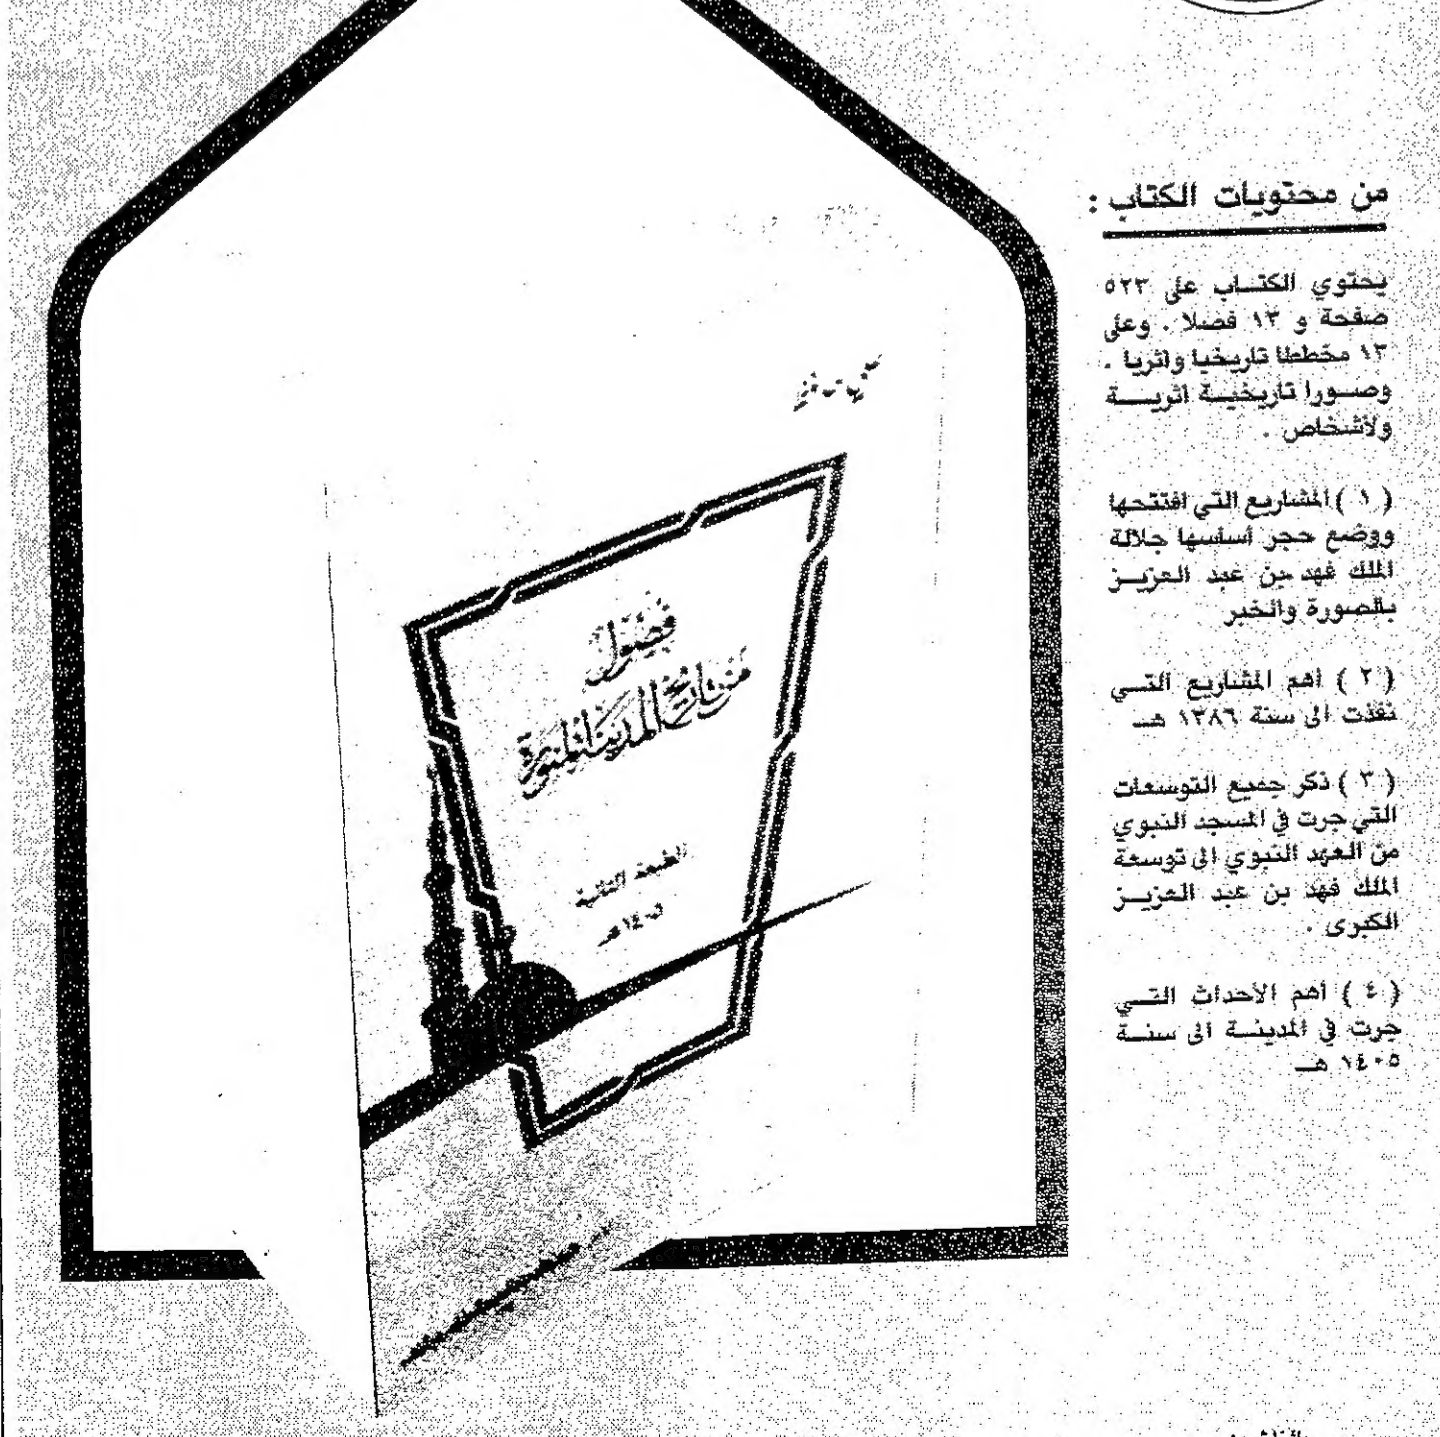 من محتويات الكتاب :
يحتوي الكتـاب على ٥٢٣
صفحة و ١٣ فصلا . وعلى
١٣ مخططا تاريخيا واثريا .
وصـورا تاريخيـة اثريـة
ولأشخاص .
( ١ ) المشاريع التي افتتحها
ووضع حجر أساسها جلالة
الملك فهد بن عبد العزيـز
بالصورة والخبر
( ٢ ) أهم المشاريع التـي
نفذت الى سنة ١٣٨٦ هـ
( ٣ ) ذكر جميع التوسعات
التي جرت في المسجد النبوي
من العهد النبوي الى توسعة
الملك فهد بن عبد العزيـز
الكبرى .
( ٤ ) أهم الأحداث التـي
جرت في المدينـة الى سنـة
١٤٠٥ هـ
فصول
من تاريخ المدينة المنورة
الطبعة الثانية
١٤٠٥هـ